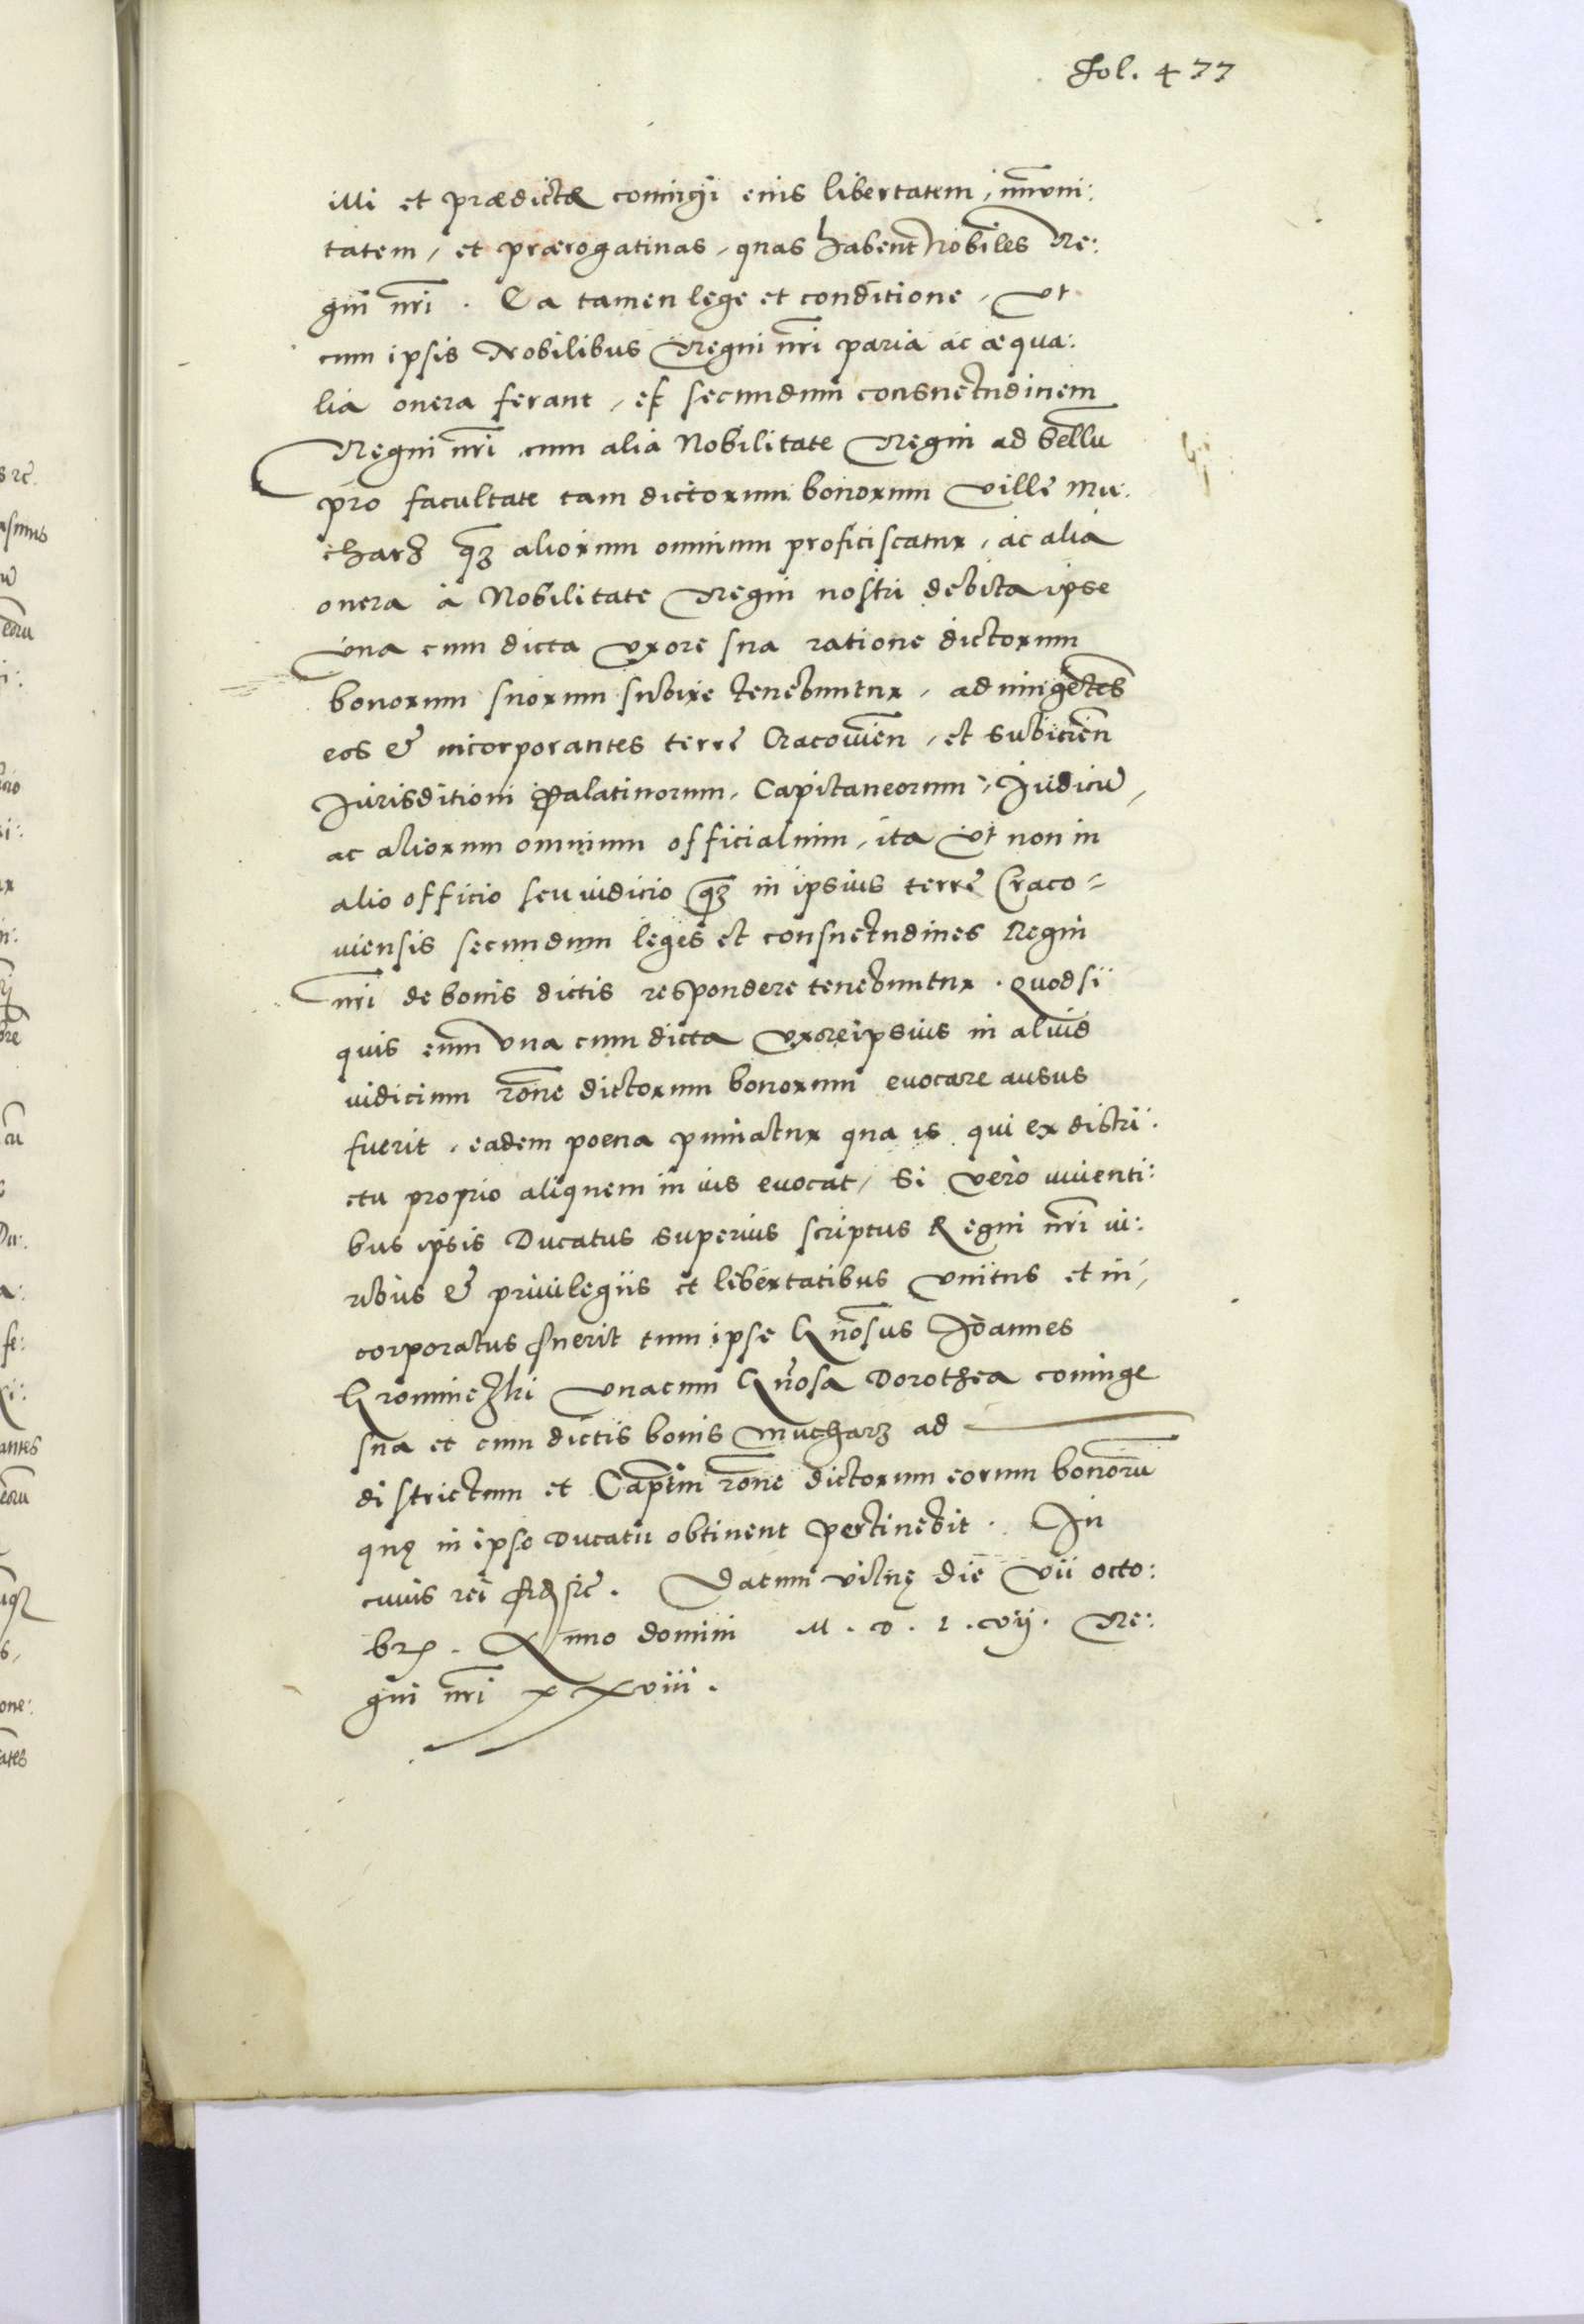 Fol. 477
illi et prædictæ coniugi eius libertatem, im̄uni:
tatem, et prærogatiuas, quas habent Nobiles Re:
gni nr̄i. Ea tamen lege et conditione, vt
cum ipsis Nobilibus Regni nr̄i paria ac æqua:
lia onera ferant, et secundum consuetudinem
Regni nr̄i cum alia Nobilitate Regni ad bellū
pro facultate tam dictorum bonorum villę Mu:
charz quā aliorum omnium proficiscatur, ac alia
onera à Nobilitate Regni nostri debita ipse
vna cum dicta vxore sua ratione dictorum
bonorum suorum subire tenebuntur, adiungētes
eos & incorporantes terrę Cracouien̄, et subicien̄
Jurisditioni Palatinorum, Capitaneorum, Judicū,
ac aliorum omnium officialium, ita vt non in
alio officio seu iudicio quā in ipsius terrę Craco=
uiensis secundum leges et consuetudines Regni
nr̄i de bonis dictis respondere tenebuntur. Quod si
quis eum vna cum dicta vxore ipsius in aliud
iudicium rōne dictorum bonorum euocare ausus
fuerit, eadem poena puniatur qua is qui ex distri:
ctu proprio aliquem in ius euocat, Si vero viuenti:
bus ipsis Ducatus superius scriptus Regni nr̄i iu:
ribus & priuilegiis et libertatibus vnitus et in
corporatus fuerit tum ipse Gn̄osus Joannes
Kromniczki vnacum Gn̄osa Dorothea coniuge
sua et cum dictis bonis Mucharz ad
districtum et Capt̄m rōne dictorum eorum bonorū
quę in ipso Ducatu obtinent pertinebit. In
cuius rei fid̄ etc̄. Datum vilnę die vii octo:
br̄. Anno domini M. D. L. vij. Re:
gni nr̄i xxviii.